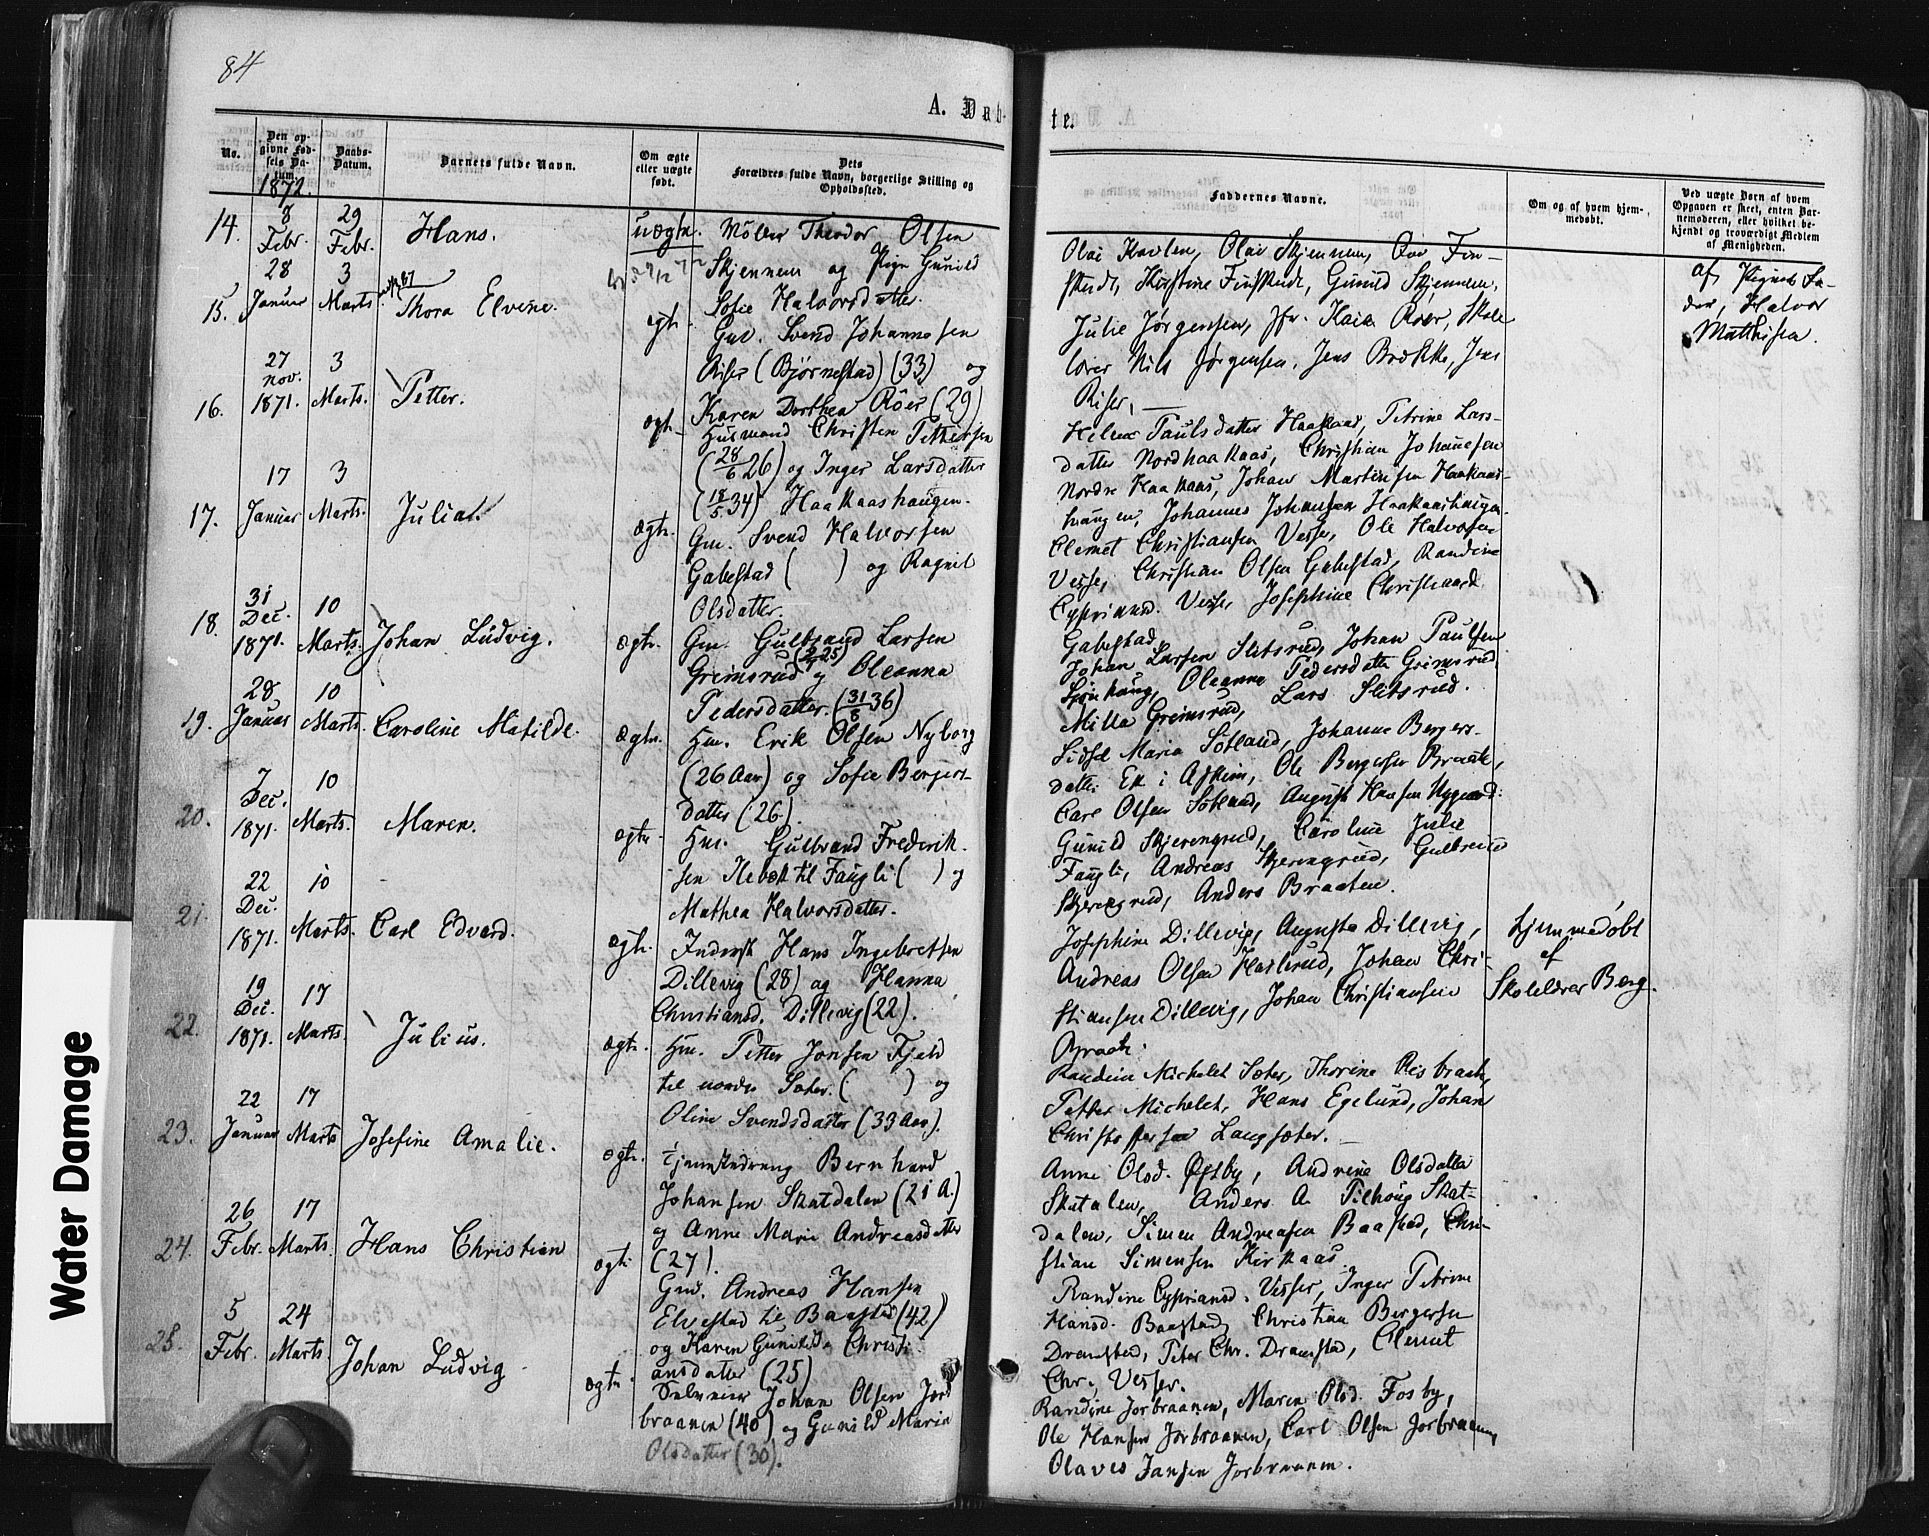 84
A. Døb-
te.
No.
Den opgivne Fødsels Datum.
Daabs-Datum.
Barnets fulde Navn.
Om ægte eller uægte født.
Dets Forældres fulde Navn, borgerlige Stilling og Opholdssted.
Faddernes Navne.
Om og af hvem hjemmedøbt.
Ved uægte Børn af hvem Opgaven er skeet, enten Barnemoderen, eller hvilket bekjendt og troværdigt Medlem af Menigheden.
1872.
14. 8 Febr. 29 Febr. Hans. uægte. Møller Theodor Olsen
Skjennem og Pige Gunild
Sofie Halvorsdatter.
Olai Skjennem,
Kristine Finstad, Gunild Skjennem,
af Pigens Fa-
der, Halvor
Matthisen.
15. 28 Januar 3 Marts. Thora Elvine. egte.
Gm. Svend Johannesen
Riser (Bjørnestad) (33) og
Karen Dorthea Röer (29)
Julie Jørgensen, Jfr. Kaia Röer, Skole
lærer Nils Jørgensen, Jens Brække, Jens
Riser,
16. 27 nov. 1871. 3 Marts. Petter. ægte
Husmand Christen Pettersen
(28/6 26) og Inger Larsdatter
(18/5 34) Haakaashaugen.
Helene Paulsdatter Haakaas, Petrine Lars-
datter Nordhaakaas, Christian Johannesen
Nordre Haakaas, Johan Martinsen Haakaas-
haugen, Johannes Johansen Haakaashaugen.
17. 17 Januar 3 Marts. Julia. ægte.
Gm. Svend Halvorsen
Gabestad ( ) og Ragnil
Olsdatter.
Clemet Christiansen Vesse, Ole Halvorsen
Vesse, Christian Olsen Gabestad, Randine
Cypriansd. Vesse, Josephine Christiansd.
Gabestad.
18. 31 Dec. 1871. 10 Marts. Johan Ludvig. ægte.
Gm. Gulbrand Larsen
Grimsrud (25) og Oleanna
Pedersdatter. (31/8 36)
Johan Larsen Slitsrud, Johan Paulsen
Oleanna Pedersdatter Grimsrud
Milla Grimsrud, Lars Slitsrud.
19. 28 Januar 10 Marts. Caroline Matilde. Ægte.
Hm. Erik Olsen Nyborg
(26 Aar) og Sofie Berger-
datter (26).
Sidsel Maria Sotland, Johanne Bergers-
datter Ek i Askim, Ole Bergersen Braate,
Carl Olsen Sotland, August Hansen Nygaard.
20. 7 Dec. 1871. 10 Marts. Maren. ægte
Hm. Gulbrand Frederik-
sen til Faugli ( ) og
Mathea Halvorsdatter.
Gunild Skjerengrud, Caroline Julie
Faugli, Andreas Skjerengrud, Gulbrand
Skjerengrud, Anders Braaten.
21. 22 Dec. 1871. 10 Marts. Carl Edvard. ægte.
Inderst Hans Ingebretsen
Dillevig (28) og Hanna
Christiansd. Dillevig (22).
Josephine Dillevig, Augusta Dillevig,
Andreas Olsen Haslerud, Johan Chri-
stiansen Dillevig, Johan Christiansen
Braate.
Hjemmedøbt
af
Skolelærer Berg.
22. 19 Dec. 1871. 17 Marts. Julius. ægte.
Hm. Petter Jonsen Fjeld
til nordre Sæter. ( ) og
Oline Svendsdatter (33 Aar).
Randine Michelet Sæter, Thorine Risbraate,
Petter Michelet, Hans Egelund, Johan
Christophersen Langsæter.
23. 22 Januar 17 Marts Josefine Amalie. ægte.
Tjenestedreng Bernhard
Johansen Skatdalen (21 A.)
og Anne Marie Andreasdatter
(27).
Anne Olsd. Østby, Andrine Olsdatter
Skatalen, Anders A. Tilhaug Skat-
dalen, Simen Andreasen Baastad, Chri-
stian Simensen Kirkaas.
24. 26 Febr. 17 Marts. Hans Christian ægte
Gm. Andreas Hansen
Elvestad til Baastad (42)
og Karen Gunilda Christi
ansdatter (25)
Randine Cypriansd. Vesser, Inger Petrine
Hansd. Baastad, Christian Bergersen
Dramstad, Peter Chr. Dramstad, Clemet
Chr. Vesser.
25. 5 Febr. 24 Marts. Johan Ludvig ægte
Selveier Johan Olsen Jord
braanen (40) og Gunild Maria
Olsdatter (30).
Randine Jorbraanen, Maren Olsd. Fosby,
Ole Hansen Jorbraanen, Carl Olsen Jorbraanen,
Olaves Jansen Jorbraanen.
Water Damage